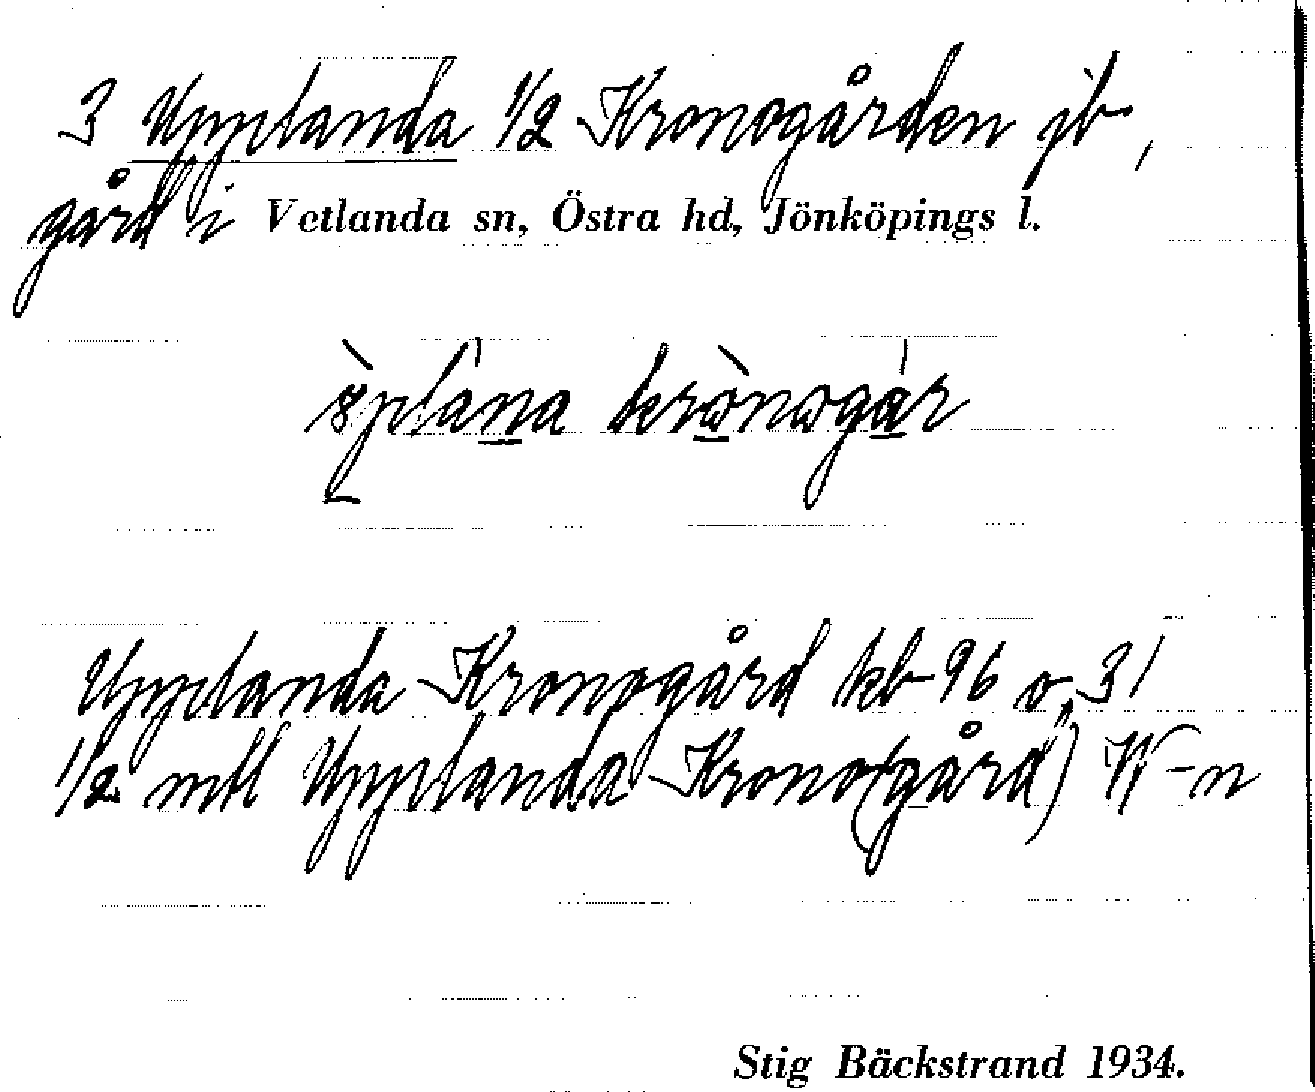 3 Upplanda 1/2 Kronogården jb,
gård i Vetlanda sn, Östra hd, Jönköpings l.
Upplanda Kronogård kb 96 o. 31
1/2 mtl Upplanda Krono(gård) W-n
Stig Bäckstrand 1934.